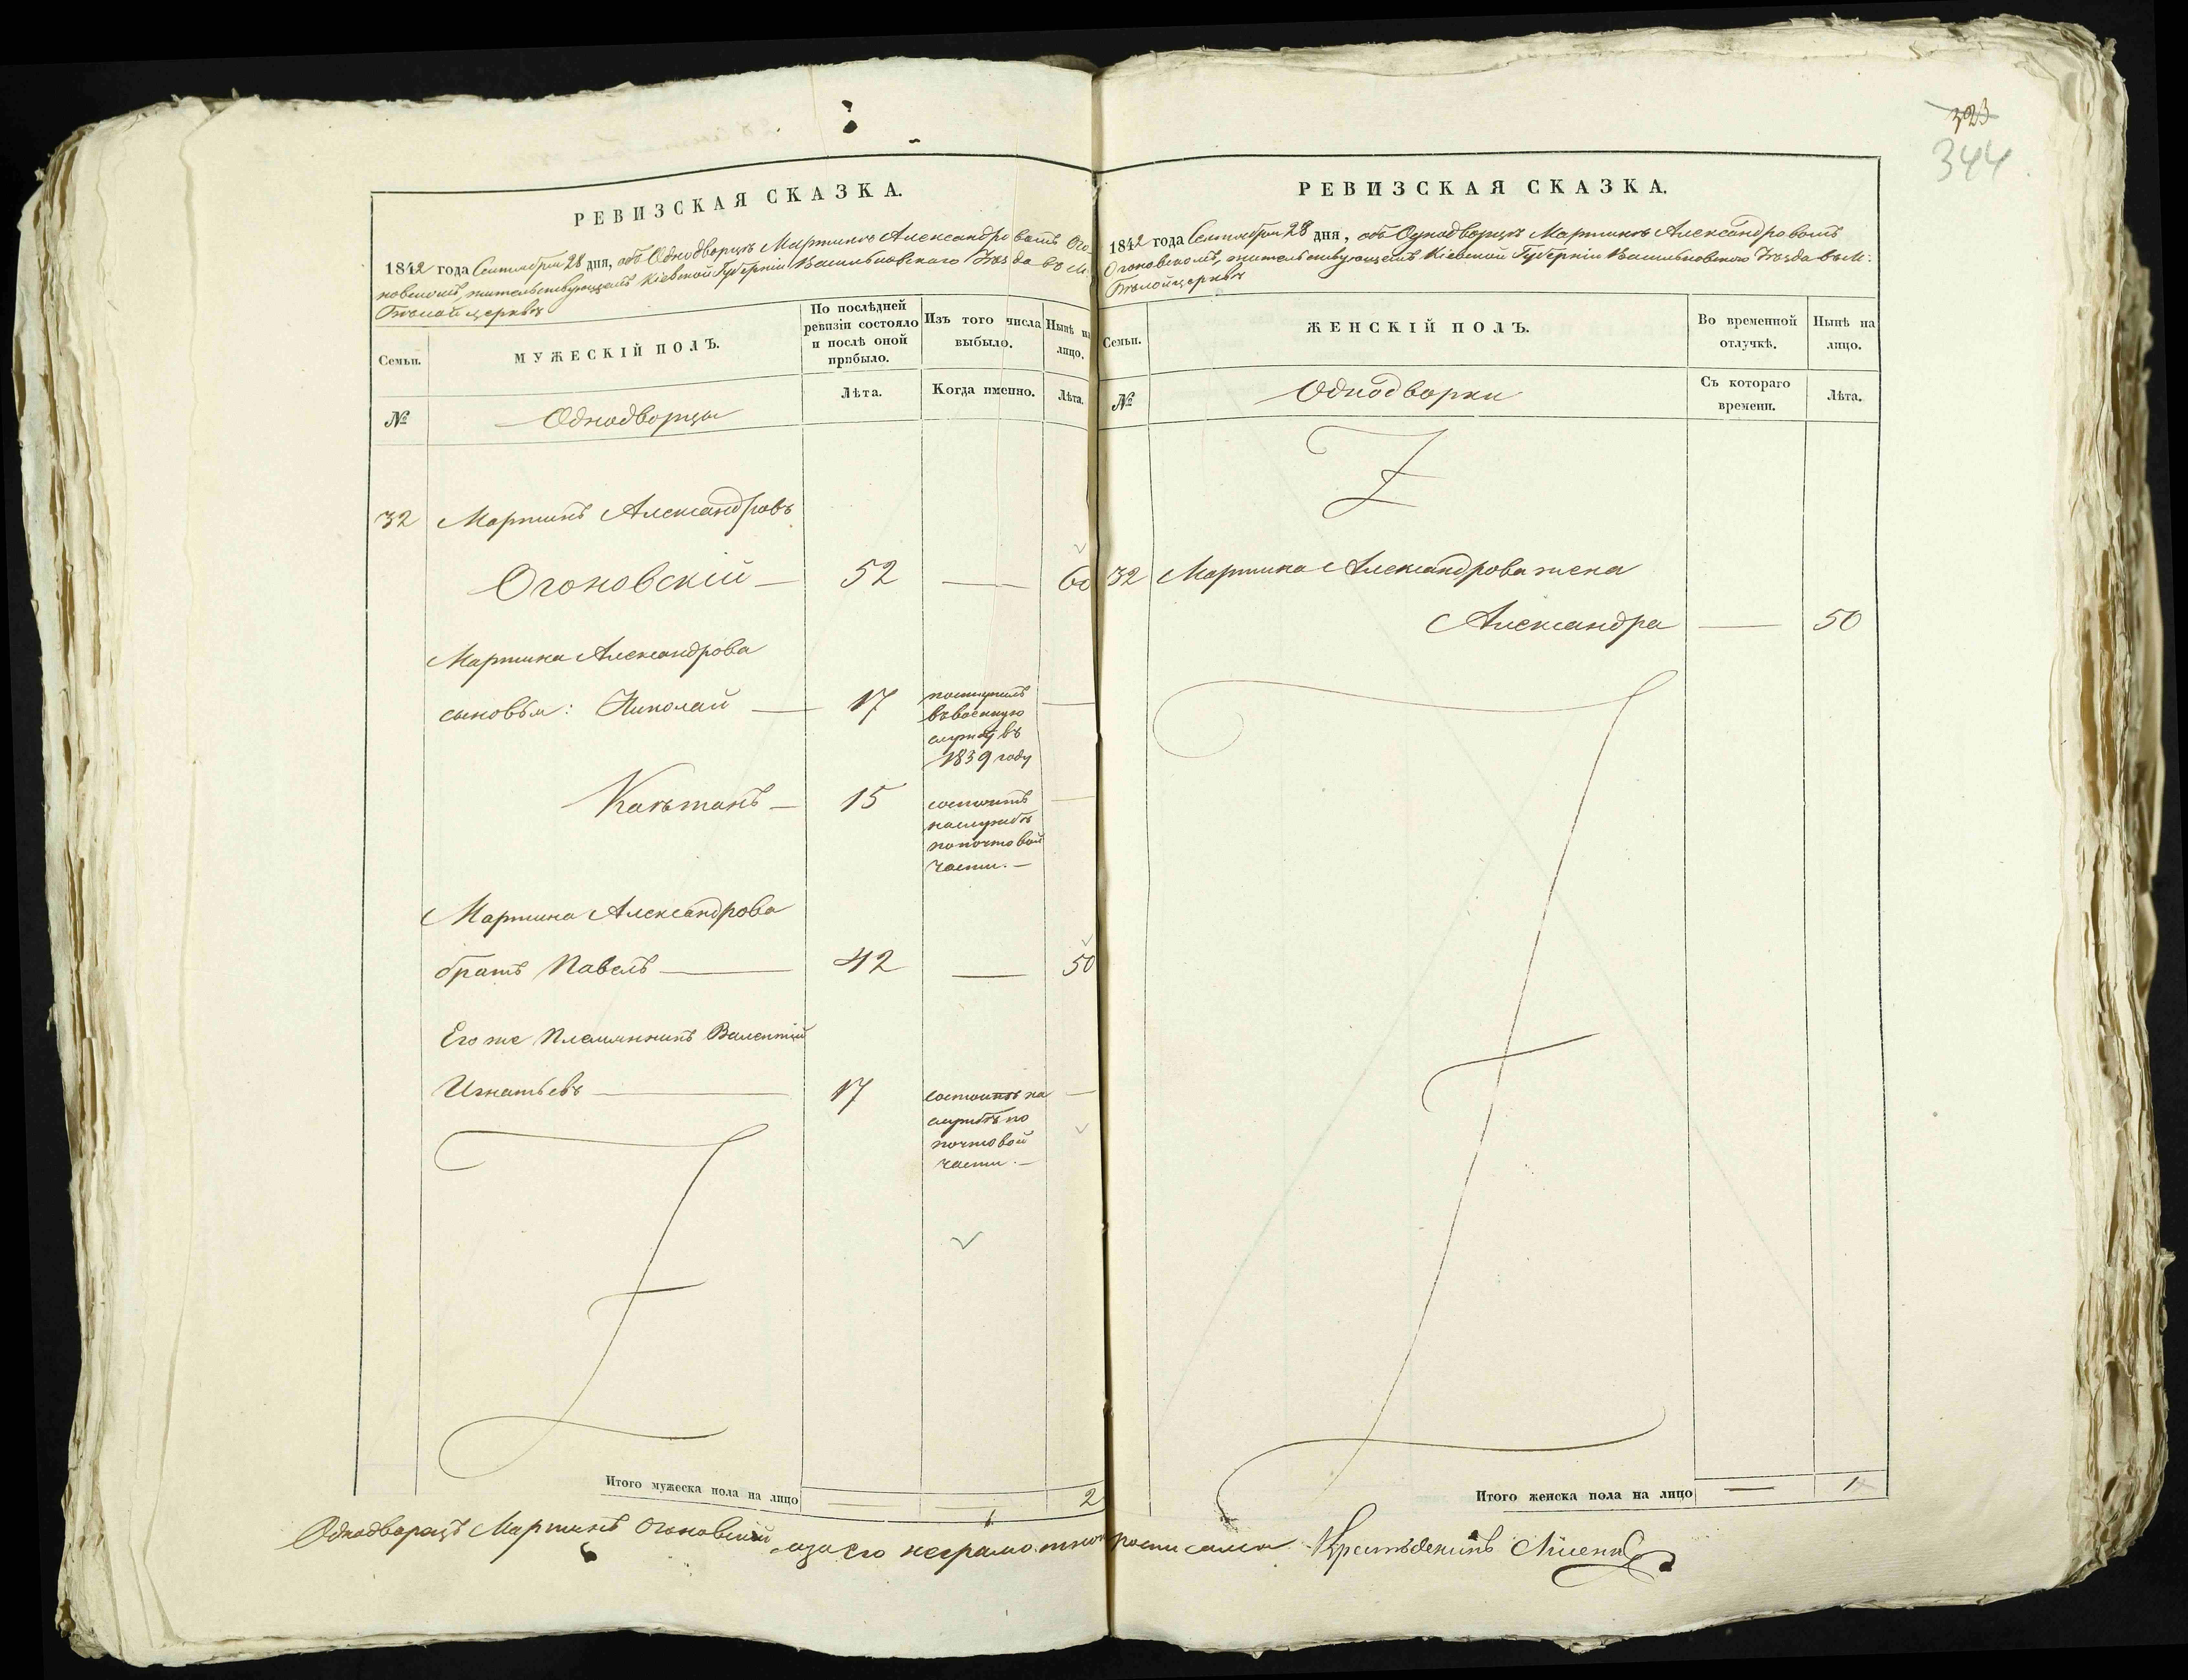 РЕВИЗСКАЯ СКАЗКА.
1842 года Сентября 28 дня, объ Однодворцѣ Мартинѣ Александровомъ Ого-
новскомъ, жительствующемъ Кіевской Губерніи Васильковскаго Уѣзда въ М:
Бѣлойцерквѣ
Семьи.
МУЖЕСКІЙ ПОЛЪ.
По послѣдней
ревизіи состояло
и послѣ оной
прибыло.
Изъ того числа
выбыло.
Нынѣ на
лицо.
№
Однодворцы
Лѣта.
Когда именно.
Лѣта.
32 Мартинъ Александровъ
Огоновскій — 52 — 60
Мартина Александрова
сыновья: Николай — 17 поступилъ —
въ военную
службу въ
1839 году
Каэтанъ — 15 состоитъ —
на службѣ
по почтовой
части. —
Мартина Александрова
братъ Павелъ — 42 — 50
Его же Племянникъ Валентій
Игнатьевъ — 17 состоитъ на —
службѣ по
почтовой
части. —
Итого мужеска пола на лицо 2
323
344
РЕВИЗСКАЯ СКАЗКА.
1842 года Сентября 28 дня, объ Однодворцѣ Мартинѣ Александровомъ
Огоновскомъ, жительствующемъ Кіевской Губерніи Васильковского Уѣзда въ М:
Бѣлойцерквѣ
Семьи.
ЖЕНСКІЙ ПОЛЪ.
Во временной
отлучкѣ.
Нынѣ на
лицо.
№
Однодворки
Съ котораго
времени.
Лѣта.
32 Мартина Александрова жена
Александра — 50
Итого женска пола на лицо — 1
Однодворецъ Мартинъ Огоновскій а за его неграмотного росписался